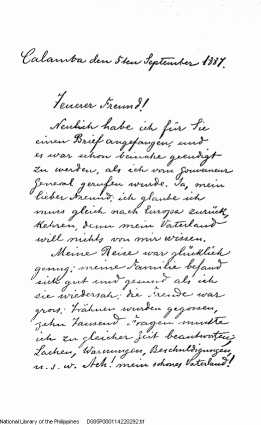 Calamba den 5ten September 1887.
Teurer Freund!
Neulich habe ich für Sie
einen Brief angefangen, und
es war schon beinahe geendigt
zu werden, als ich vom Gouverneur
General gerufen wurde. Ja, mein
lieber Freund, ich glaube ich
muss gleich nach Europa zurück
kehren, denn mein Vaterland
will nichts von mir wissen.
Meine Reise war glücklich
genug; meine Familie befand
sich gut und gesund als ich
sie wiedersah; die Freude war
gros; Thränen wurden gegossen,
zehn Tausend Fragen musste
ich zu gleicher Zeit beantworten;
Lachen, Warnungen, Beschuldigungen,
u. s. w. Ach! mein schönes Vaterland!
National Library of the Philippines